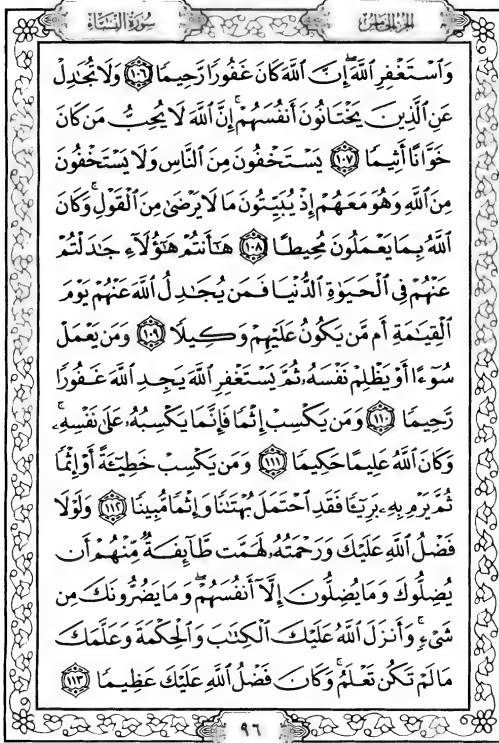 سُورَةُ النِّسَاءِ
الجزء الخامس
وَٱسۡتَغۡفِرِ ٱللَّهَۖ إِنَّ ٱللَّهَ كَانَ غَفُورٗا رَّحِيمٗا ١٠٦ وَلَا تُجَٰدِلۡ
عَنِ ٱلَّذِينَ يَخۡتَانُونَ أَنفُسَهُمۡۚ إِنَّ ٱللَّهَ لَا يُحِبُّ مَن كَانَ
خَوَّانًا أَثِيمٗا ١٠٧ يَسۡتَخۡفُونَ مِنَ ٱلنَّاسِ وَلَا يَسۡتَخۡفُونَ
مِنَ ٱللَّهِ وَهُوَ مَعَهُمۡ إِذۡ يُبَيِّتُونَ مَا لَا يَرۡضَىٰ مِنَ ٱلۡقَوۡلِۚ وَكَانَ
ٱللَّهُ بِمَا يَعۡمَلُونَ مُحِيطًا ١٠٨ هَٰٓأَنتُمۡ هَٰٓؤُلَآءِ جَٰدَلۡتُمۡ
عَنۡهُمۡ فِي ٱلۡحَيَوٰةِ ٱلدُّنۡيَا فَمَن يُجَٰدِلُ ٱللَّهَ عَنۡهُمۡ يَوۡمَ
ٱلۡقِيَٰمَةِ أَم مَّن يَكُونُ عَلَيۡهِمۡ وَكِيلٗا ١٠٩ وَمَن يَعۡمَلۡ
سُوٓءًا أَوۡ يَظۡلِمۡ نَفۡسَهُۥ ثُمَّ يَسۡتَغۡفِرِ ٱللَّهَ يَجِدِ ٱللَّهَ غَفُورٗا
رَّحِيمٗا ١١٠ وَمَن يَكۡسِبۡ إِثۡمٗا فَإِنَّمَا يَكۡسِبُهُۥ عَلَىٰ نَفۡسِهِۦۚ
وَكَانَ ٱللَّهُ عَلِيمًا حَكِيمٗا ١١١ وَمَن يَكۡسِبۡ خَطِيٓـَٔةً أَوۡ إِثۡمٗا
ثُمَّ يَرۡمِ بِهِۦ بَرِيٓـٔٗا فَقَدِ ٱحۡتَمَلَ بُهۡتَٰنٗا وَإِثۡمٗا مُّبِينٗا ١١٢ وَلَوۡلَا
فَضۡلُ ٱللَّهِ عَلَيۡكَ وَرَحۡمَتُهُۥ لَهَمَّت طَّآئِفَةٞ مِّنۡهُمۡ أَن
يُضِلُّوكَ وَمَا يُضِلُّونَ إِلَّآ أَنفُسَهُمۡۖ وَمَا يَضُرُّونَكَ مِن
شَيۡءٖۚ وَأَنزَلَ ٱللَّهُ عَلَيۡكَ ٱلۡكِتَٰبَ وَٱلۡحِكۡمَةَ وَعَلَّمَكَ
مَا لَمۡ تَكُن تَعۡلَمُۚ وَكَانَ فَضۡلُ ٱللَّهِ عَلَيۡكَ عَظِيمٗا ١١٣
٩٦